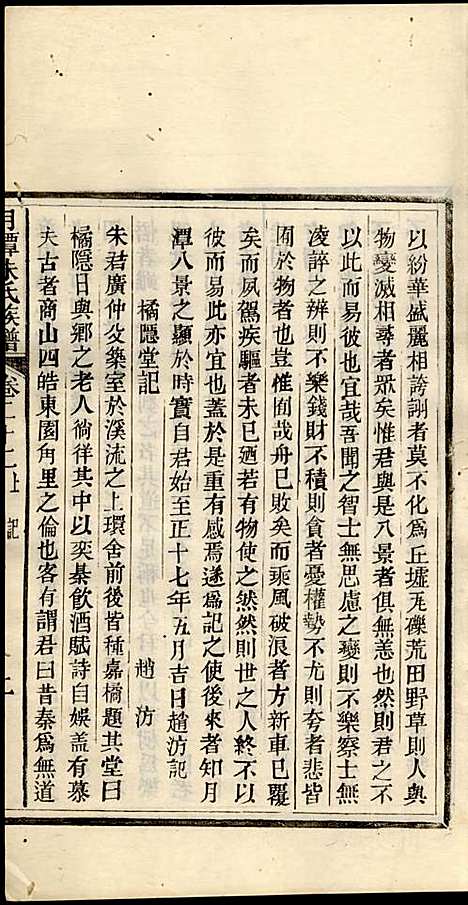 以紛華盛麗相誇謝者莫不化爲丘墟瓦礫荒田野草則人與
物變滅相尋者眾矣惟君與是八景者俱無恙也然則君之不
以此而易彼也宜哉吾聞之智士無思慮之變則不樂察士無
凌誶之辨則不樂錢財不積則貪者憂權勢不尤則夸者悲皆
囿於物者也豈惟囿哉舟已敗矣而乘風破浪者方新車已覆
矣而夙駕疾驅者未已廼若有物使之然然則世之人終不以
彼而易此亦宜也蓋於是重有感焉遂爲記之使後來者知月
潭八景之顯於時實自君始至正十七年五月吉日趙汸記
橘隱堂記
趙汸
朱君廣仲父築室於溪流之上環舍前後皆種嘉橘題其堂曰
橘隱日與鄉之老人徜徉其中以奕棊飲酒賦詩自娛蓋有慕
夫古者商山四皓東園角里之倫也客有謂君曰昔秦爲無道
月潭朱氏族譜 卷二十二上 記